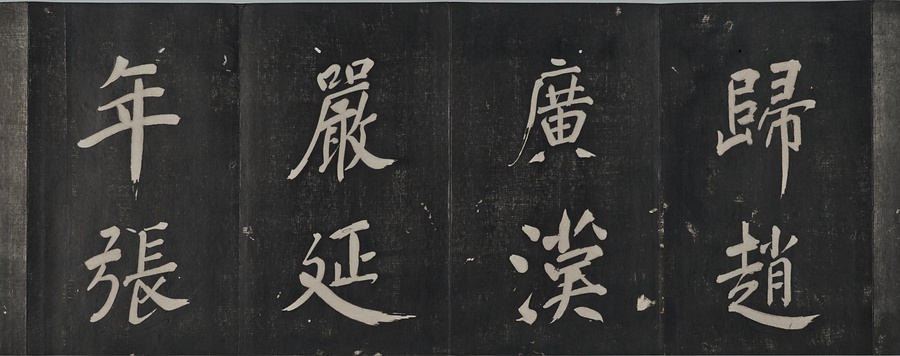 歸趙
廣漢
嚴延
年張